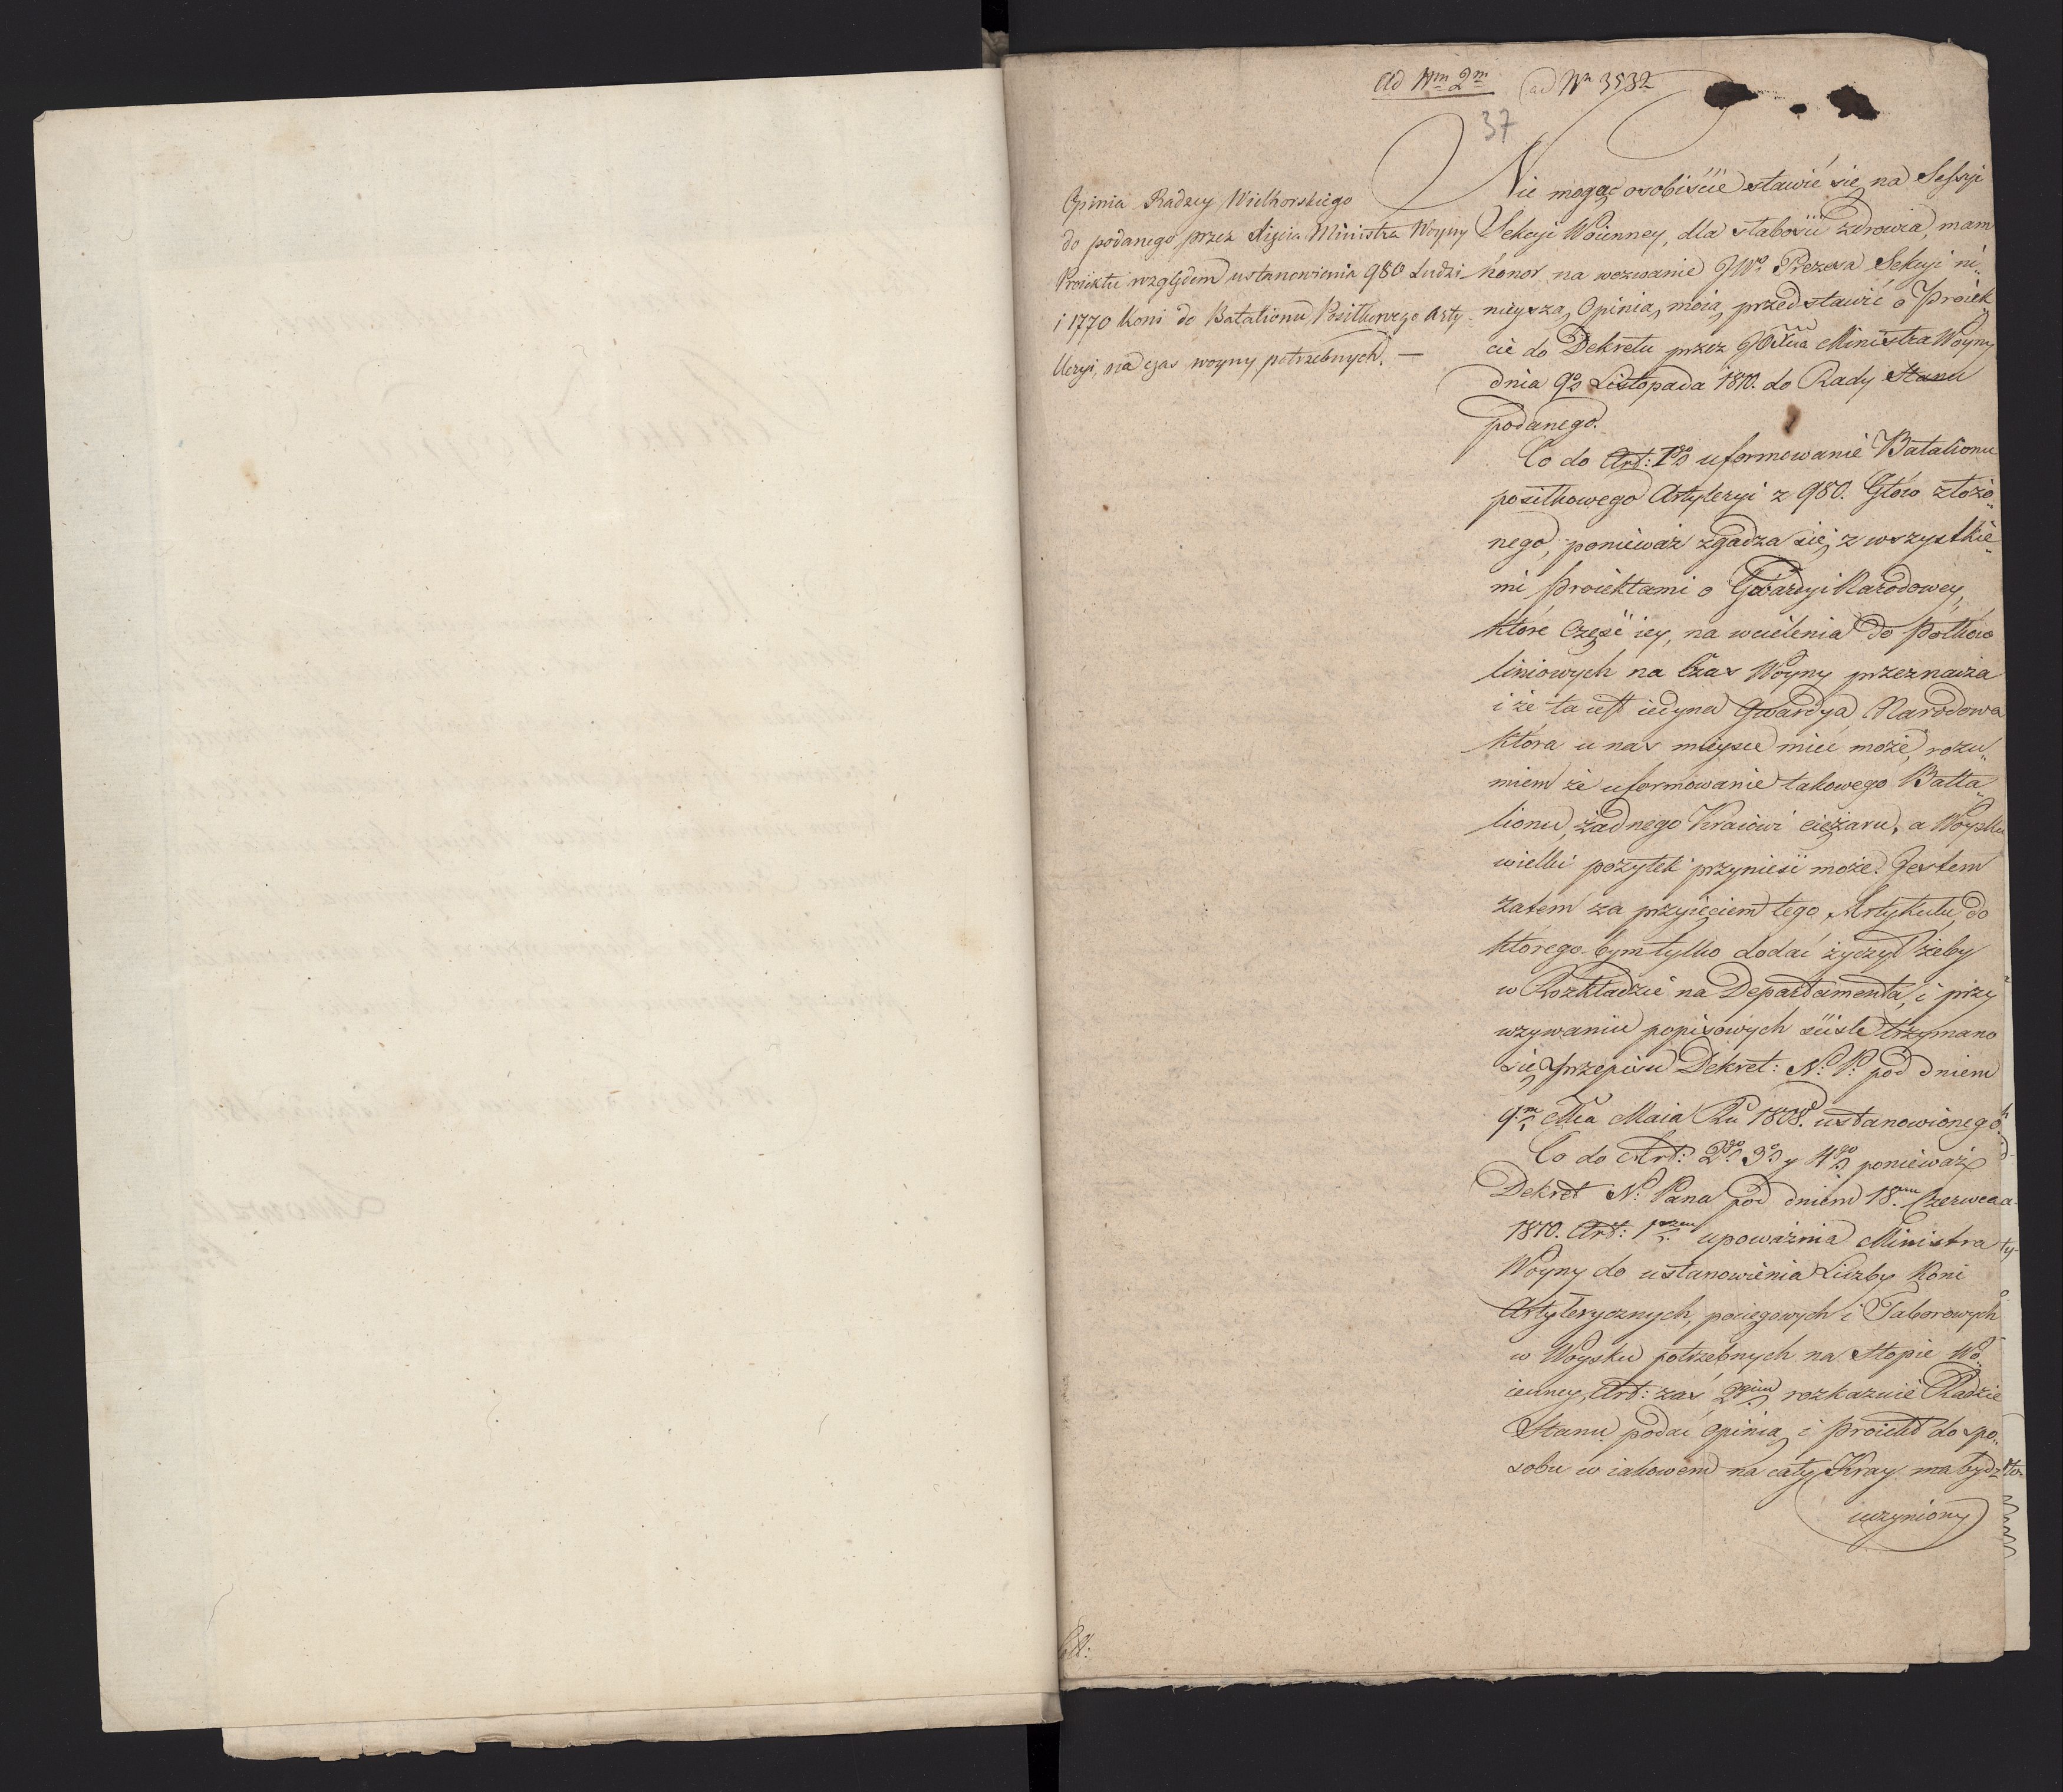 Ad Nm 2m ad Nr 3532
37
Opinia Radzcy Wielhorskiego
do podanego przez Xięcia Ministra Woyny
Proiektu względem ustanowienia 980 Ludzi
i 1770 Koni do Batalionu Posiłkowego Arty-
lleryi, na czas woyny potrzebnych. —
Nie mogąc osobiście stawić się na Sessyi
Sekcyi Woienney, dla słabości zdrowia, mam
honor na wezwanie JWo Prezesa Sekcyi ni„
nieyszą Opinią moią przedstawić o Proiek„
cie do Dekretu przez JO Xcia Ministra Woyny
dnia 9o Listopada 1810. do Rady Stanu
podanego.
Co do Art: 1go uformowanie Batalionu
posiłkowego Artyleryi z 980. Głów złożo„
nego, ponieważ zgadza się z wszystkie„
mi Proiektami o Gwardyi Narodowey,
które Część iey, na wcielenia do Półków
liniowych na Czas Woyny przeznacza
i że ta iest iedyna Gwardya Narodowa
która u nas mieysce mieć może, rozu„
miem że uformowanie takowego Batta„
lionu, żadnego Kraiowi ciężaru, a Woysku
wielki pożytek przynieść może. Jestem
zatem za przyięciem tego Artykułu, do
którego bym tylko dodać życzył żeby
w Rozkładzie na Departamenta, i przy
wzywaniu popisowych ściśle trzymano
się Przepisu Dekret: N: P: pod dniem
9m Mca Maia Ru 1808. ustanowionego.
Co do Art: 2go 3o y 4go ponieważ
Dekret N: Pana pod dniem 18m Czerwca
1810. Art: 1szym upoważnia Ministra
Woyny do ustanowienia Liczby Koni
Artylerycznych, pociągowych i Taborowych
w Woysku potrzebnych na Stopie Wo„
ienney, Art: zaś 2gim rozkazuie Radzie
Stanu podać opinią i Proiekt do spo„
sobu w iakowem na cały Kray ma bydź
uczyniony